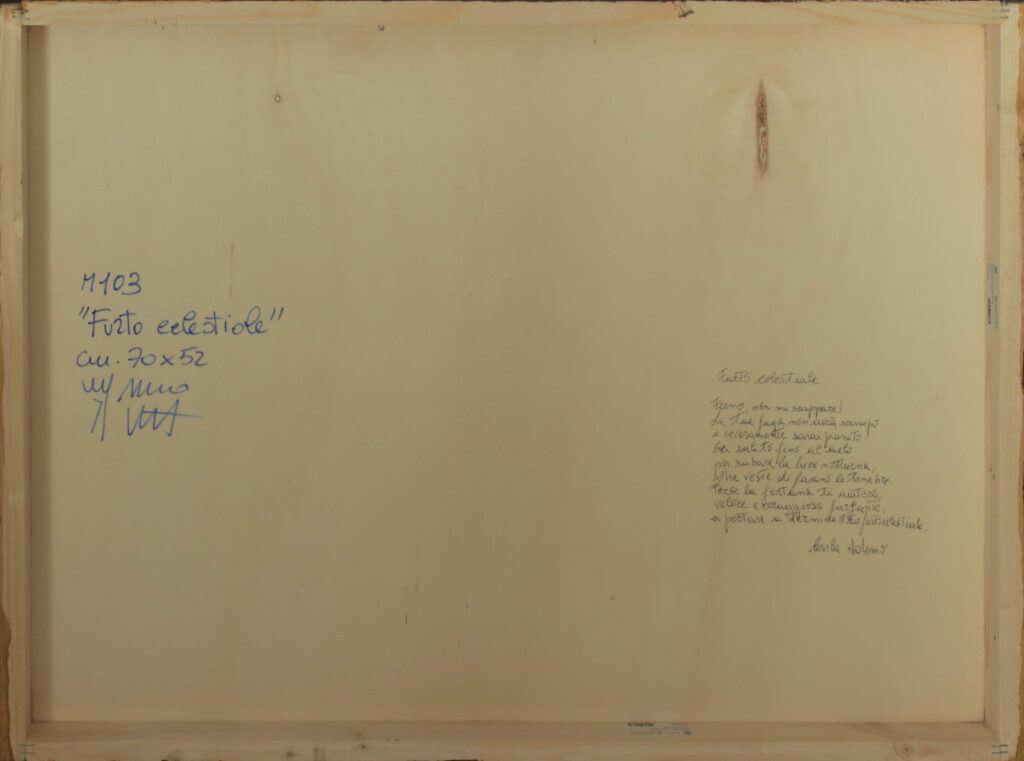 M103
"Furto celestiale"
cm. 70x52
Furto celestiale
Fermo, non mi scappare!
La tua fuga non avrà scampo
e severamente sarai punito.
Sei salito fino al cielo
per rubare la luce notturna,
che veste di fascino le tenebre.
Forse la fortuna ti aiuterà
veloce e coraggioso furfante,
a portare a termine il tuo furto celestiale.
Adamo